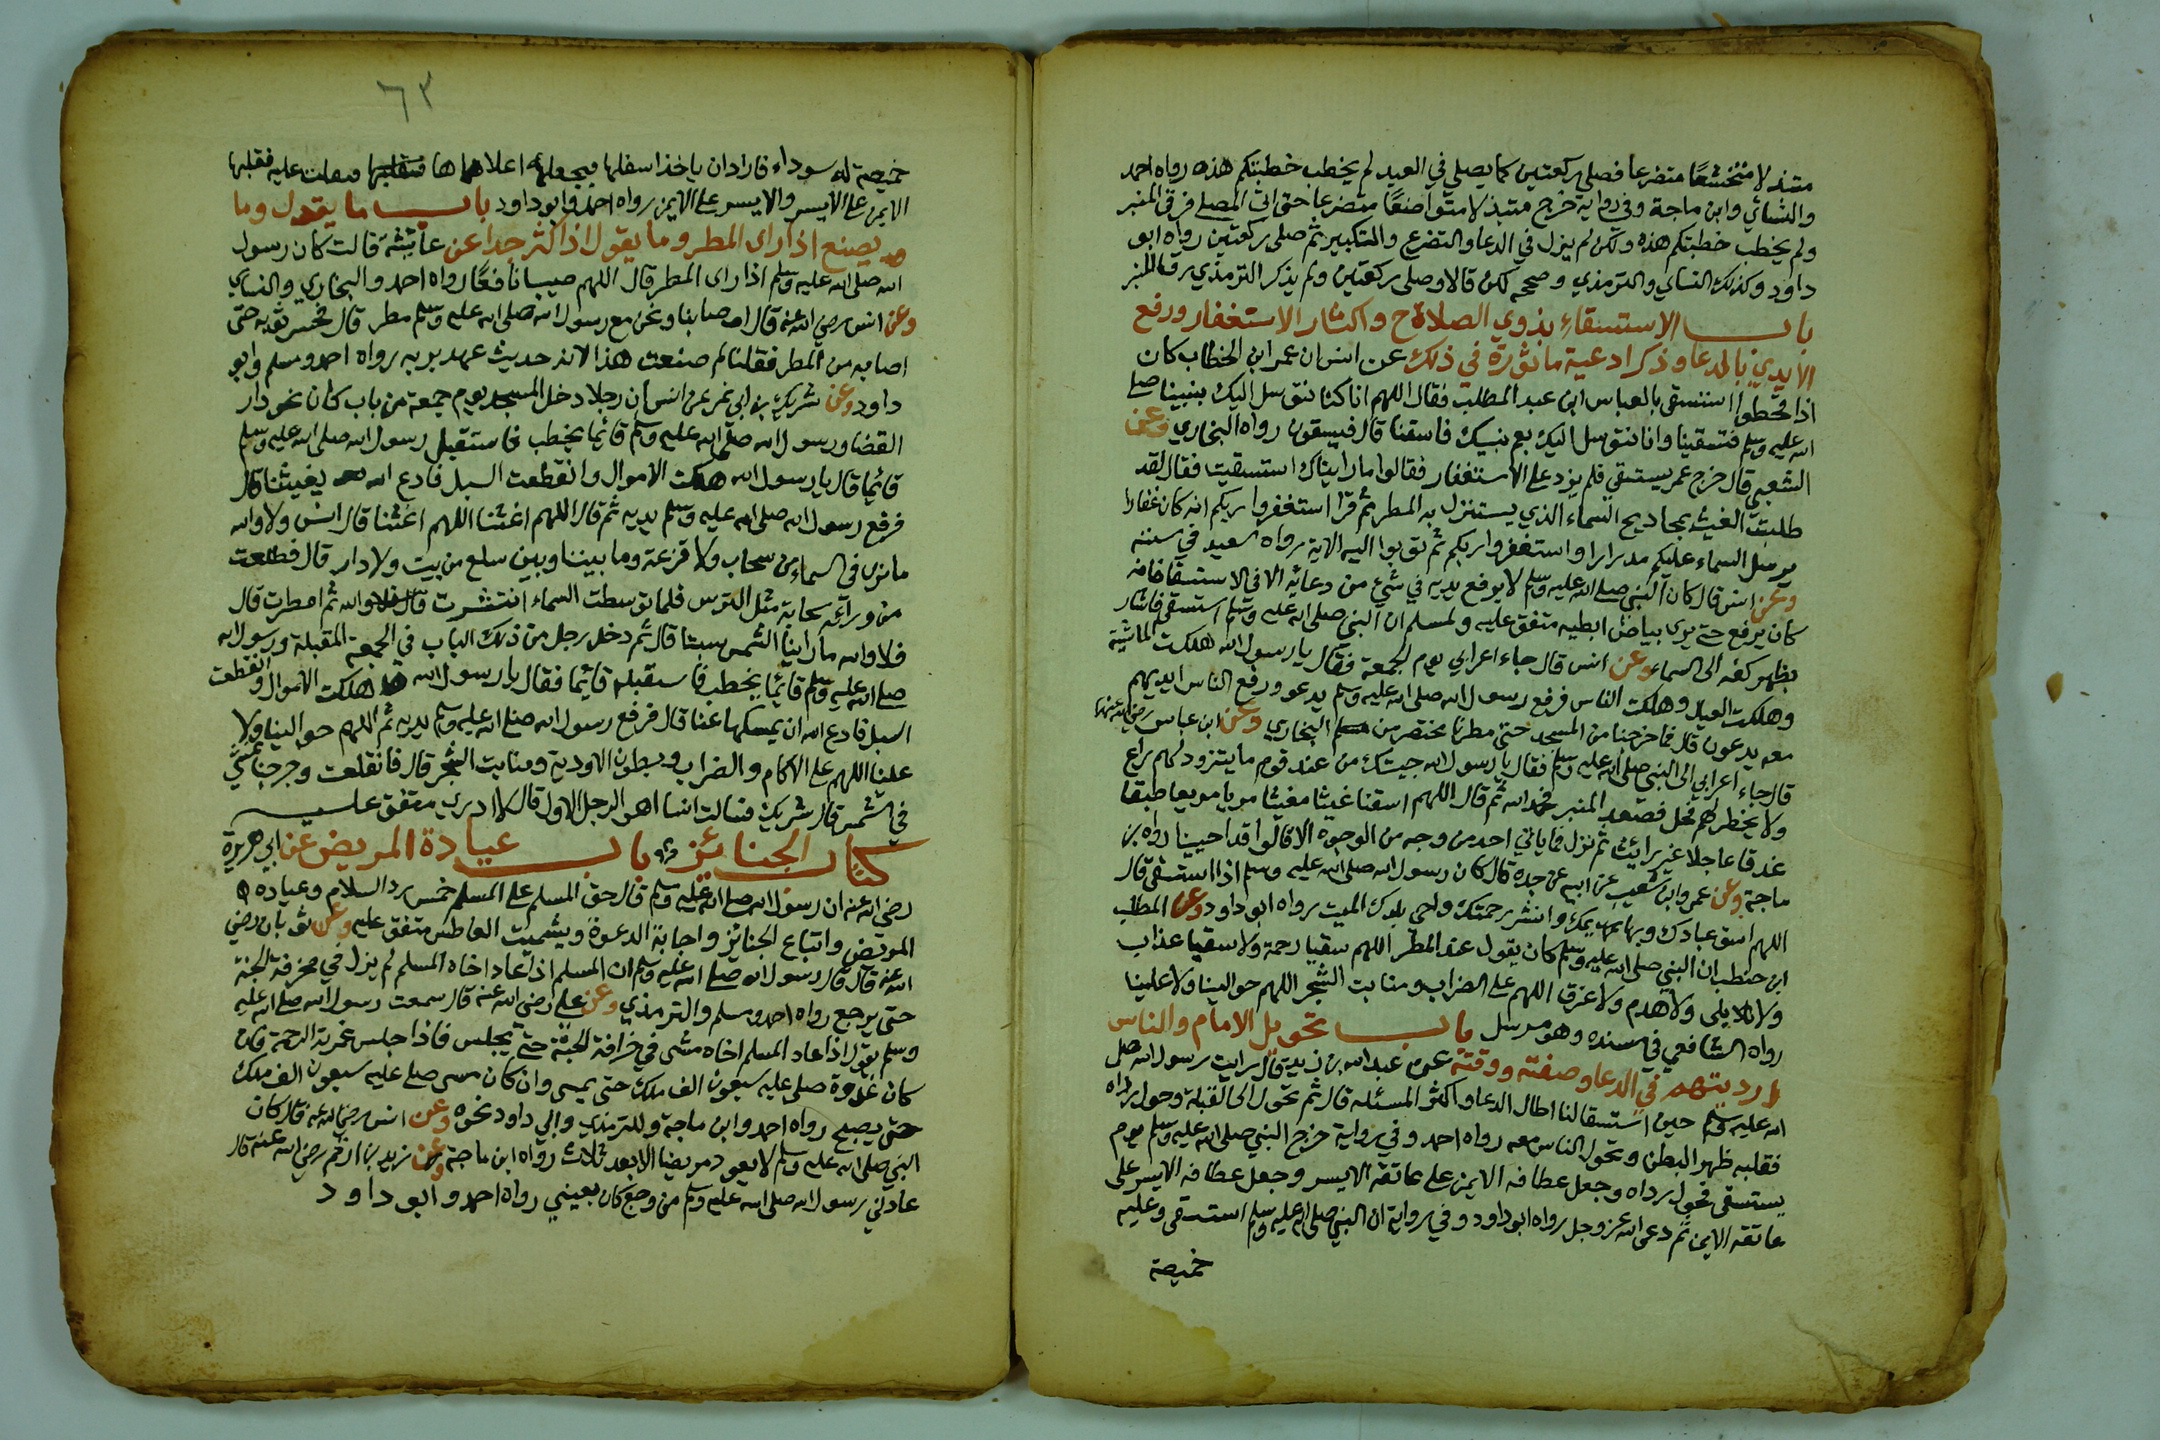 متبذلا متخشعا متضرعا فصلى ركعتين كما يصلي في العيد لم يخطب خطبتكم هذه رواه احمد
والنسائي وابن ماجة وفي رواية خرج متبذلا متواضعا متضرعا حتى اتى المصلى فرقى المنبر
ولم يخطب خطبتكم هذه ولكن لم يزل في الدعا والتضرع والتكبير ثم صلى ركعتين رواه ابو
داود وكذلك النساي والترمذي وصححه لكن قالا وصلى ركعتين ولم يذكر الترمذي رقي المنبر
باب الاستسقاء بذوي الصلاح واكثار الاستغفار ورفع
الايدي بالدعا وذكر ادعية ماثورة في ذلك عن انس ان عمر ابن الخطاب كان
اذا قحطوا استسقى بالعباس ابن عبد المطلب فقال اللهم انا كنا نتوسل اليك بنبينا صلى
الله عليه وسلم فتسقينا وانا نتوسل اليك بعم نبيك فاسقنا قال فيسقون رواه البخاري وعن
الشعبي قال خرج عمر يستسقي فلم يزد على الاستغفار فقالوا ما رايناك استسقيت فقال لقد
طلبت الغيث بمجاديح السماء الذي يستنزل به المطر ثم قرا استغفروا ربكم انه كان غفارا
يرسل السماء عليكم مدرارا واستغفروا ربكم ثم توبوا اليه الاية رواه سعيد في سننه
وعن انس قال كان النبي صلى الله عليه وسلم لا يرفع يديه في شيء من دعائه الا في الاستسقا فانه
كان يرفع حتى يرى بياض ابطيه متفق عليه ولمسلم ان النبي صلى الله عليه وسلم استسقى فاشار
بظهر كفه الى السماء وعن انس قال جاء اعرابي يوم الجمعة فقال يا رسول الله هلكت الماشية
وهلكت العيال وهلكت الناس فرفع رسول الله صلى الله عليه وسلم يدعو ورفع الناس ايديهم
معه يدعون قال فما خرجنا من المسجد حتى مطرنا مختصر من البخاري وعن ابن عباس رضي الله عنهما
قال جاء اعرابي الى النبي صلى الله عليه وسلم فقال يا رسول الله جيتك من عند قوم ما يتزود لهم راع
ولا يخطر لهم فحل فصعد المنبر فحمد الله ثم قال اللهم اسقنا غيثا مغيثا مريا مريعا طبقا
غدقا عاجلا غير رائث ثم نزل فما ياتي احد من وجه من الوجوه الا قالوا قد احيينا رواه بن
ماجة وعن عمرو ابن شعيب عن ابيه عن جده قال كان رسول الله صلى الله عليه وسلم اذا استسقى قال
اللهم اسق عبادك وبهايمك وانشر رحمتك واحي بلدك الميت رواه ابو داود وعن المطلب
ابن حنطب ان النبي صلى الله عليه وسلم كان يقول عند المطر اللهم سقيا رحمة ولا سقيا عذاب
ولا بلا ولا هدم ولا غرق اللهم على الضراب ومنابت الشجر اللهم حوالينا ولا علينا
رواه الشافعي في مسنده وهو مرسل باب تحويل الامام والناس
ارديتهم في الدعا وصفته ووقته عن عبد الله بن زيد قال رايت رسول الله صلى
الله عليه وسلم حين استسقا لنا اطال الدعا واكثر المسئلة قال ثم تحول الى القبلة وحول رداه
فقلبه ظهرا لبطن وتحول الناس معه رواه احمد وفي رواية خرج النبي صلى الله عليه وسلم يوم
يستسقى فحول رداه وجعل عطافه الايمن على عاتقه الايسر وجعل عطافه الايسر على
عاتقه الايمن ثم دعى الله عز وجل رواه ابو داود وفي رواية ان النبي صلى الله عليه وسلم استسقى وعليه
خميصة
٦٣
خميصة له سوداء فاراد ان ياخذ اسفلها فيجعله اعلاها فثقلت عليه فقلبها
الايمن على الايسر والايسر على الايمن رواه احمد وابو داود باب ما يقول وما
يصنع اذا راى المطر وما يقول اذا كثر جدا عن عائشة قالت كان رسول
الله صلى الله عليه وسلم اذا راى المطر قال اللهم صيبا نافعا رواه احمد والبخاري والنساي
وعن انس رضي الله عنه قال اصابنا ونحن مع رسول الله صلى الله عليه وسلم مطر قال فحسر ثوبه حتى
اصابه من المطر فقلنا لم صنعت هذا قال لانه حديث عهد بربه رواه احمد ومسلم وابو
داود وعن شريك بن ابي نمر عن انس ان رجلا دخل المسجد يوم جمعة من باب كان نحو دار
القضا ورسول الله صلى الله عليه وسلم قائما يخطب فاستقبل رسول الله صلى الله عليه وسلم
قائما قال يا رسول الله هلكت الاموال وانقطعت السبل فادع الله يغيثنا قال
فرفع رسول الله صلى الله عليه وسلم يديه ثم قال اللهم اغثنا اللهم اغثنا قال انس ولا والله
ما نرى في السماء من سحاب ولا قزعة وما بيننا وبين سلع من بيت ولا دار قال فطلعت
من ورائه سحابة مثل الترس فلما توسطت السماء انتشرت قال والله ثم امطرت قال
فلا والله ما راينا الشمس سبتا قال ثم دخل رجل من ذلك الباب في الجمعة المقبلة ورسول الله
صلى الله عليه وسلم قائما يخطب فاستقبله قائما فقال يا رسول الله هلكت الاموال وانقطعت
السبل فادع الله ان يمسكها عنا قال فرفع رسول الله صلى الله عليه وسلم يديه ثم اللهم حوالينا ولا
علينا اللهم على الاكام والضراب وبطون الاودية ومنابت الشجر قال فانقلعت وخرجنا نمشي
في الشمس قال شريك فسالت انسا اهو الرجل الاول قال لا ادري متفق عليه
كتاب الجنائز باب عيادة المريض عن ابي هريرة
رضي الله عنه ان رسول الله صلى الله عليه وسلم قال حق المسلم على المسلم خمس رد السلام وعيادة
المريض واتباع الجنائز واجابة الدعوة وتشميت العاطس متفق عليه وعن ثوبان رضي
الله عنه قال قال رسول الله صلى الله عليه وسلم ان المسلم اذا عاد اخاه المسلم لم يزل في مخرفة الجنة
حتى يرجع رواه احمد ومسلم والترمذي وعن علي رضي الله عنه قال سمعت رسول الله صلى الله عليه
وسلم يقول اذا عاد المسلم اخاه مشى في خرافة الجنة حتى يجلس فاذا جلس غمرته الرحمة فان
كان غدوة صلى عليه سبعون الف ملك حتى يمسى وان كان مسى صلى عليه سبعون الف ملك
حتى يصبح رواه احمد وابن ماجة وللترمذي وابي داود نحوه وعن انس رضي الله عنه قال كان
النبي صلى الله عليه وسلم لا يعود مريضا الا بعد ثلاث رواه ابن ماجة وعن زيد بن ارقم رضي الله عنه قال
عادني رسول الله صلى الله عليه وسلم من وجع كان بعيني رواه احمد وابو داود